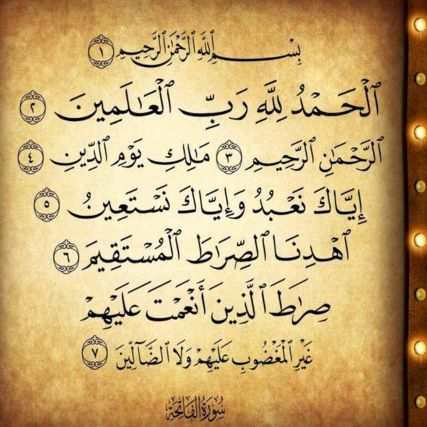 بِسْمِ ٱللَّهِ ٱلرَّحْمَٰنِ ٱلرَّحِيمِ ١
ٱلْحَمْدُ لِلَّهِ رَبِّ ٱلْعَٰلَمِينَ ٢
ٱلرَّحْمَٰنِ ٱلرَّحِيمِ ٣ مَٰلِكِ يَوْمِ ٱلدِّينِ ٤
إِيَّاكَ نَعْبُدُ وَإِيَّاكَ نَسْتَعِينُ ٥
ٱهْدِنَا ٱلصِّرَٰطَ ٱلْمُسْتَقِيمَ ٦
صِرَٰطَ ٱلَّذِينَ أَنْعَمْتَ عَلَيْهِمْ
غَيْرِ ٱلْمَغْضُوبِ عَلَيْهِمْ وَلَا ٱلضَّآلِّينَ ٧
سُورَةُ ٱلْفَاتِحَةِ